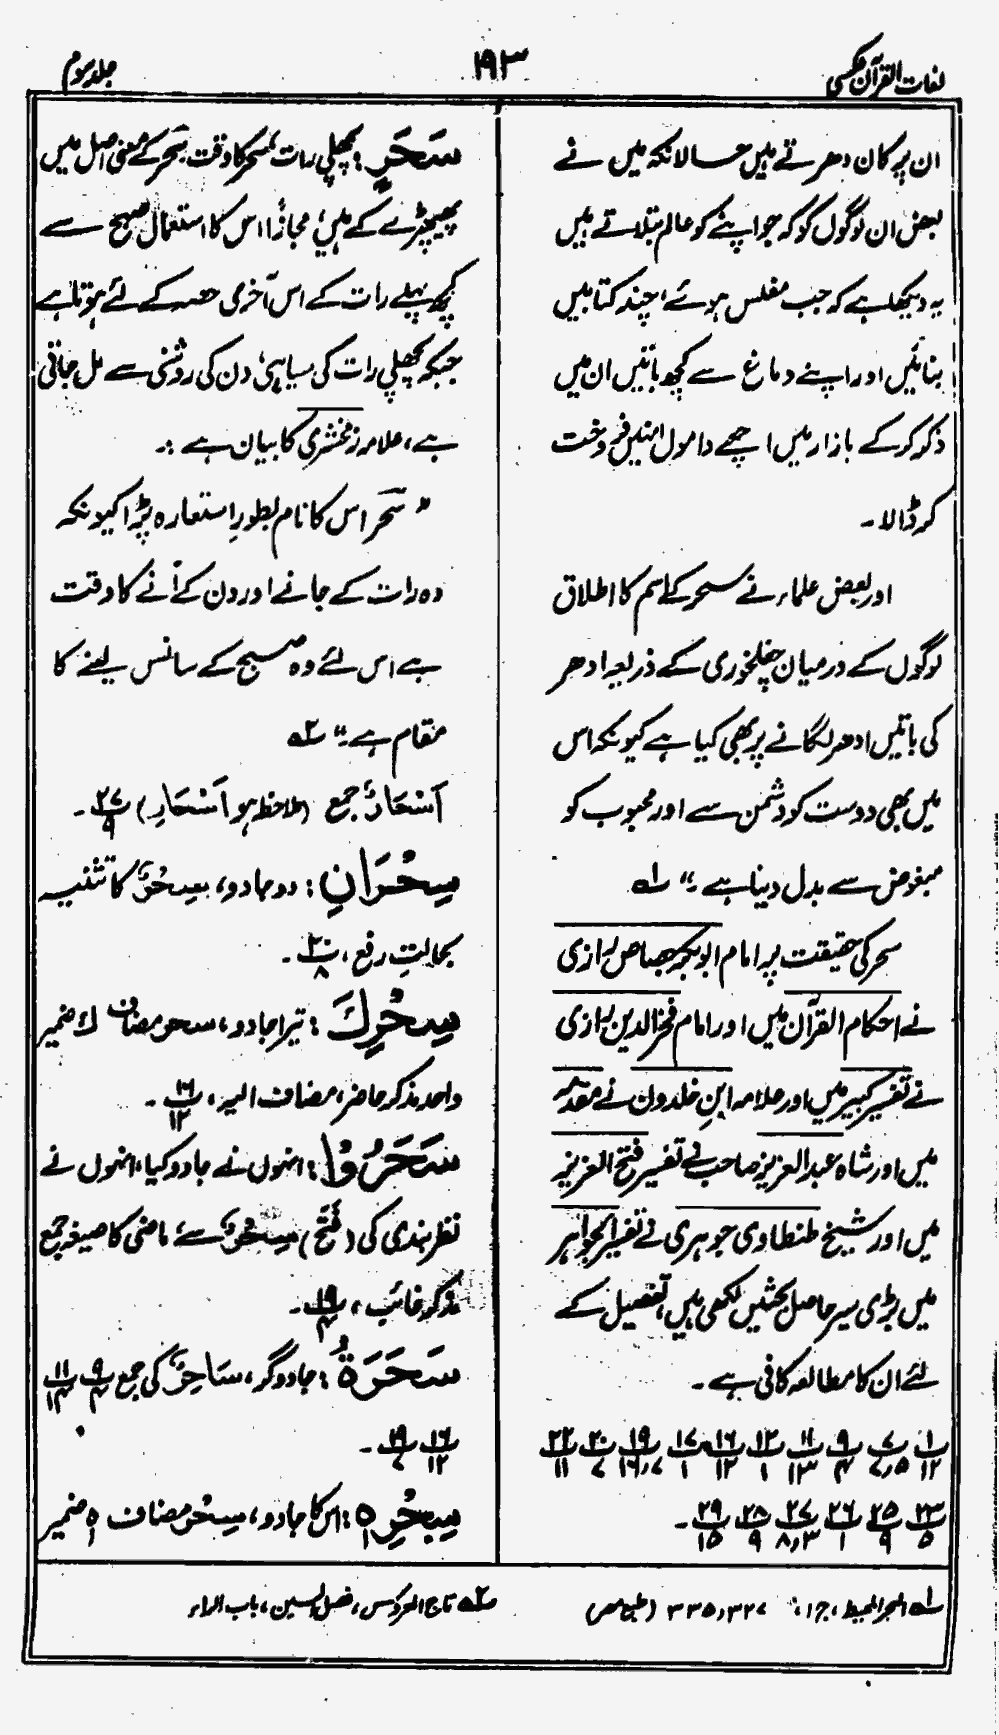 لغات القرآن عکسی
۱۹۳
جلد سوم
ان پر کان دھرتے ہیں حالانکہ میں نے
بعض ان لوگوں کو کہ جو اپنے کو عالم بتلاتے ہیں
یہ دیکھا ہے کہ جب مفلس ہوئے، چند کتابیں
بنائیں اور اپنے دماغ سے کچھ باتیں ان میں
ذکر کر کے بازار میں اچھے داموں انہیں فروخت
کر ڈالا۔
اور بعض علماء نے سحر کے اسم کا اطلاق
لوگوں کے درمیان چغلخوری کے ذریعہ ادھر
کی باتیں ادھر لگانے پر بھی کیا ہے کیونکہ اس
میں بھی دوست کو دشمن سے اور محبوب کو
مبغوض سے بدل دینا ہے۔" ۱ھ
سحر کی حقیقت پر امام ابوبکر جصاص رازی
نے احکام القرآن میں اور امام فخر الدین رازی
نے تفسیر کبیر میں اور علامہ ابنِ خلدون نے مقدمہ
میں اور شاہ عبدالعزیز صاحب نے تفسیر فتح العزیز
میں اور شیخ طنطاوی جوہری نے تفسیر الجواہر
میں بڑی سیر حاصل بحثیں لکھی ہیں، تفصیل کے
لئے ان کا مطالعہ کافی ہے۔
۱/۱۲ ۷/۷٫۵ ۹/۴ ۱۱/۱۳ ۱۲/۱ ۱۶/۱۲ ۱۷/۱ ۱۹/۱۶٫۷ ۲۰/۷ ۲۲/۱۱
۲۳/۵ ۲۵/۹ ۲۶/۱ ۲۷/۸٫۳ ۲۵/۹ ۲۹/۱۵۔
سَحَرٍ: پچھلی رات، سحر کا وقت، سَحَر کے معنی اصل میں
پھیپھڑے کے ہیں، مجازًا اس کا استعمال صبح سے
کچھ پہلے رات کے اس آخری حصہ کے لئے ہوتا ہے
جبکہ پچھلی رات کی سیاہی دن کی روشنی سے مل جاتی
ہے، علامہ زمخشری کا بیان ہے :۔
"سَحَر اس کا نام بطورِ استعارہ پڑا کیونکہ
وہ رات کے جانے اور دن کے آنے کا وقت
ہے اس لئے وہ صبح کے سانس لینے کا
مقام ہے۔" ۲ھ
اَسْحَارٌ جمع (ملاحظہ ہو اَسْحَارِ) ۲۷/۹۔
سِحْرَانِ: دو جادو، سِحْرٌ کا تثنیہ
بحالتِ رفع، ۲۰/۸۔
سِحْرِكَ: تیرا جادو، سحر مضاف ك ضمیر
واحد مذکر حاضر، مضاف الیہ، ۱۶/۱۲۔
سَحَرُوْا: انہوں نے جادو کیا، انہوں نے
نظر بندی کی (فَتَحَ) سِحْرٌ سے ماضی کا صیغہ جمع
مذکر غائب، ۱۹/۴۔
سَحَرَةُ: جادوگر، سَاحِرٌ کی جمع ۹/۴ ۱۱/۱۴
۱۶/۱۲ ۱۹/۷۔
سِحْرِهٖ: اس کا جادو، سِحْر مضاف ہٖ ضمیر
۱ھ البحر المحیط، ج ۱، ۳۳۵٫۳۲۷ (طبع مصر)
۲ھ تاج العروس، فصل السین، باب الراء